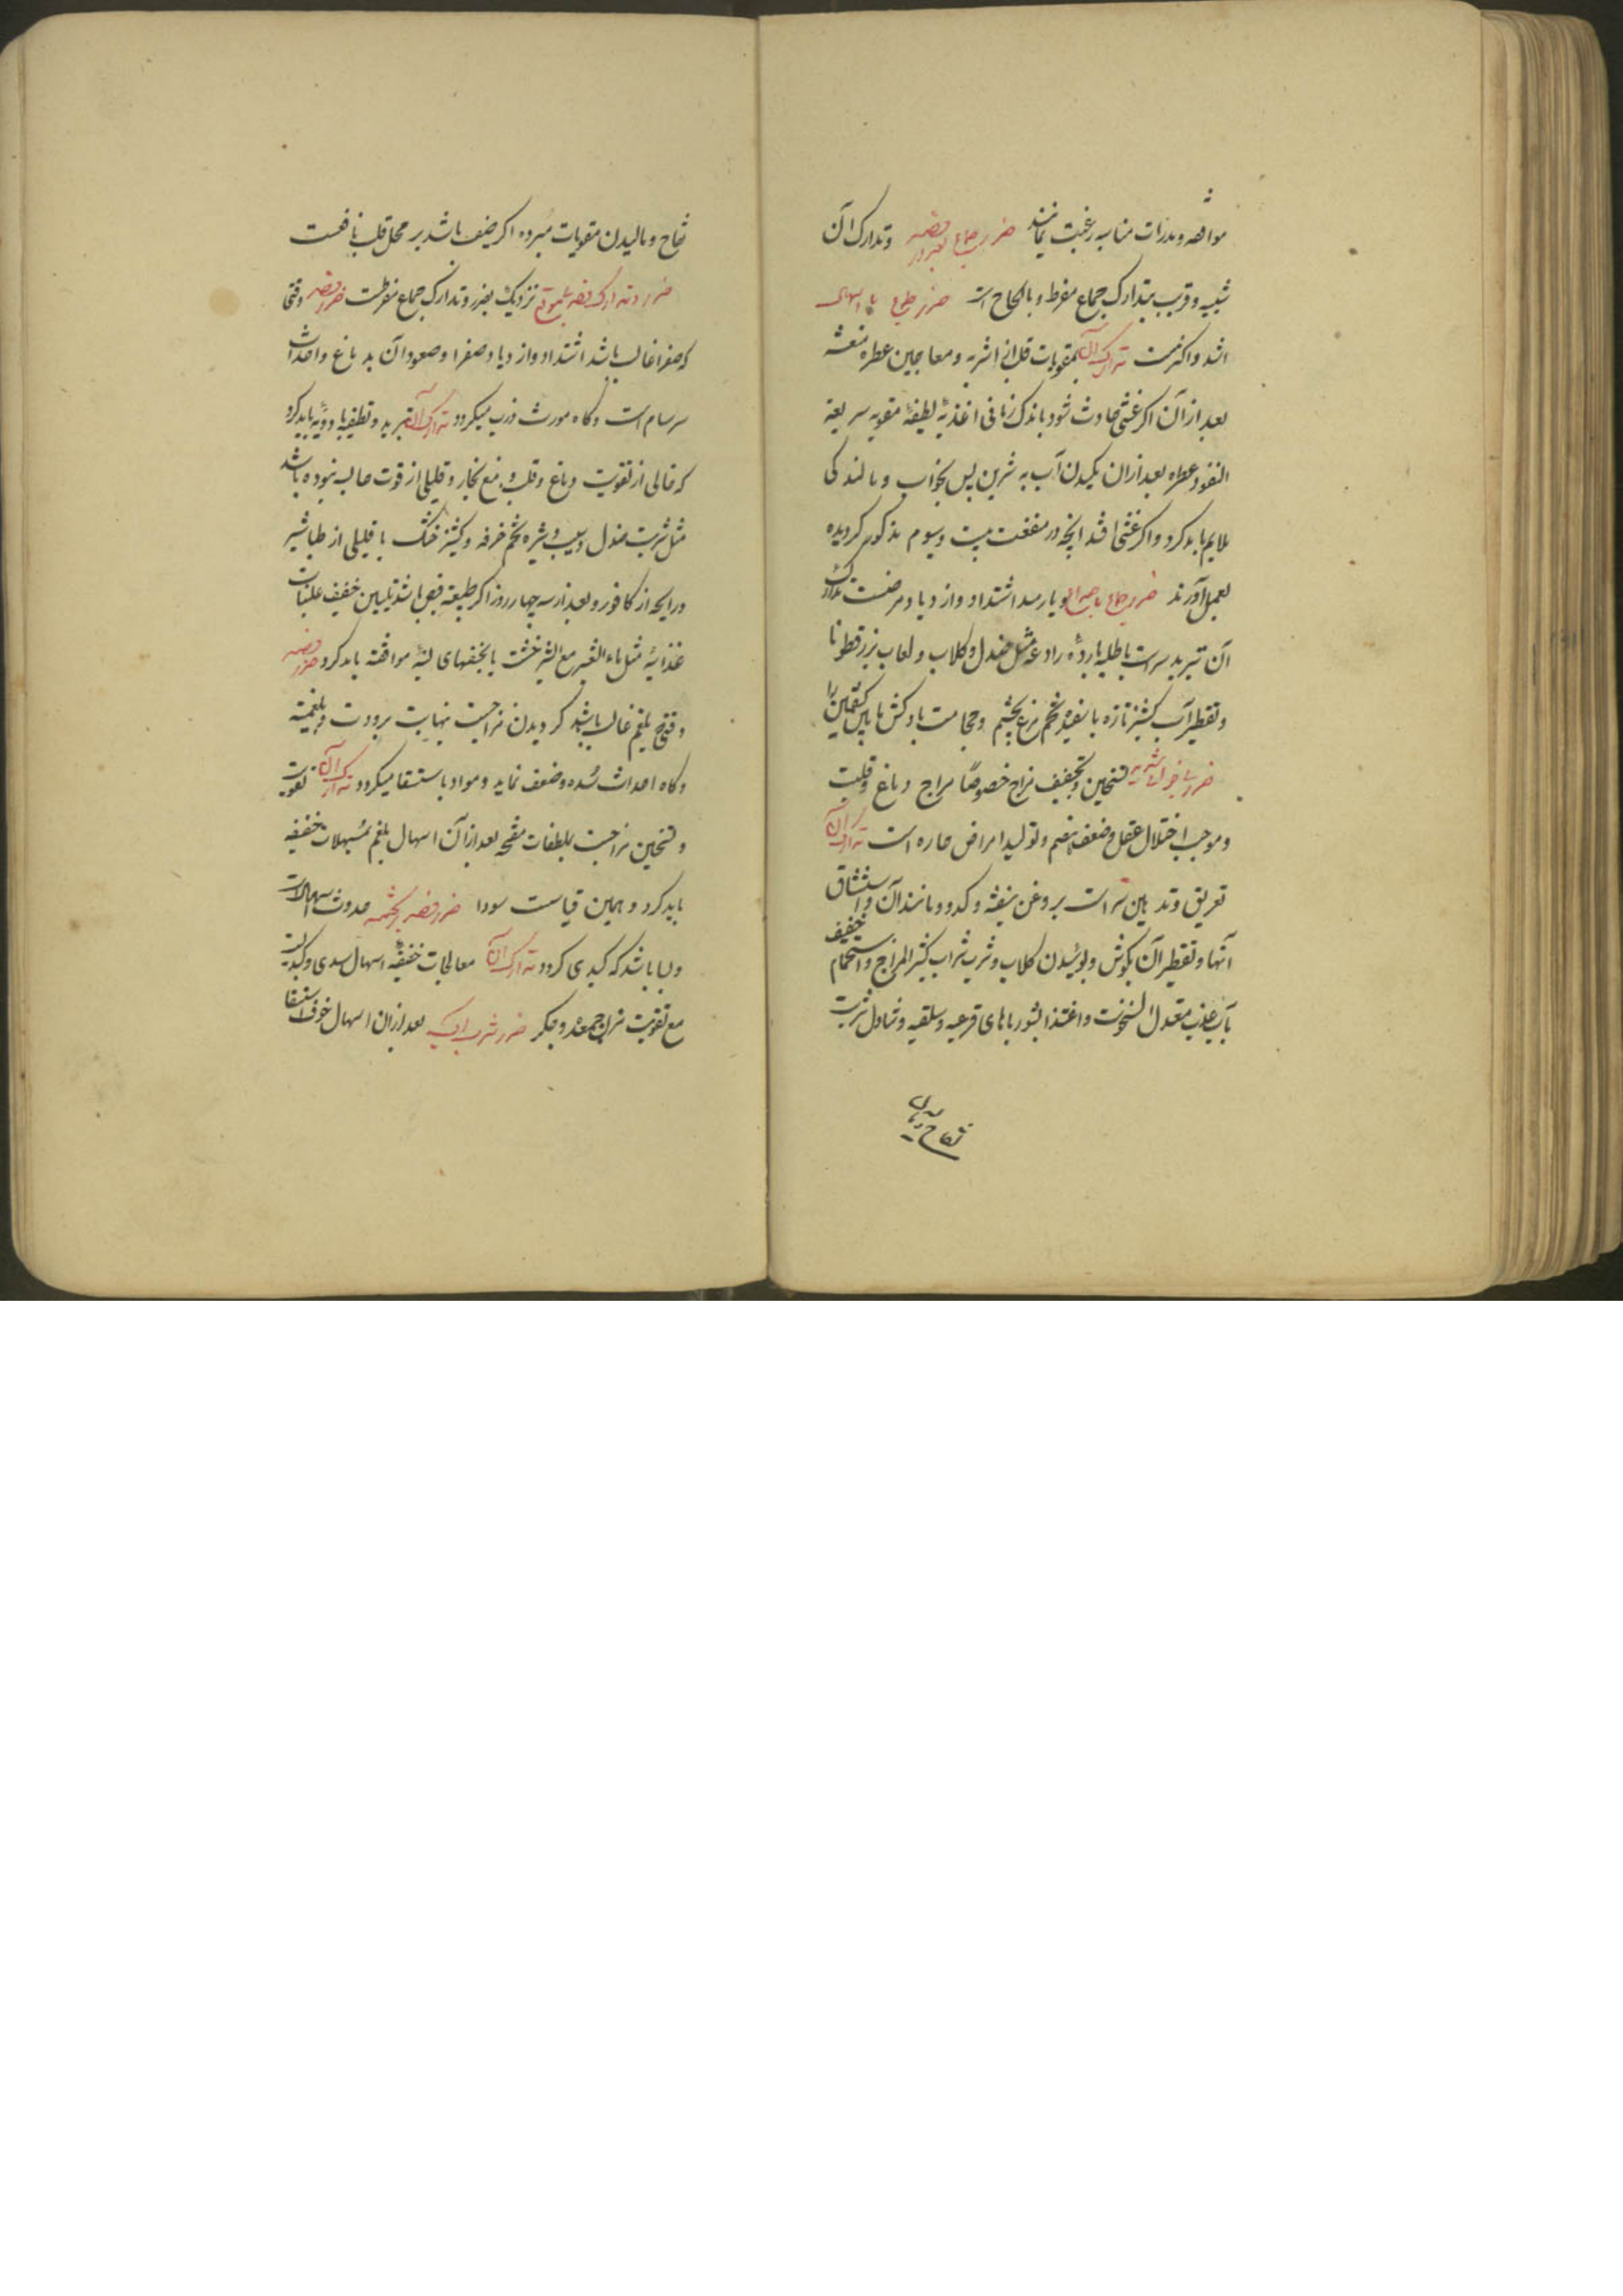 موافقه و مدرات مناسبه رغبت نمایند ضرر جماع بعد از فصد و تدارک آن
شبیه و قریب بتدارک جماع مفرط و بالحاح است ضرر جماع با اسهال
اشد و اکثرست تدارک آن بمقویات قلب از اشربه و معاجین عطره منعشه
بعد از آن اگر غشی حادث شود باندک زمانی اغذیهٔ لطیفهٔ مقویه سریعة
النفوذ عطره بعد از ان مکیدن آب به شیرین پس بخواب و مالندکی
ملایم باید کرد و اگر غشی افتد آنچه در منفعت بیست و سیوم مذکور گردیده
بعمل آورند ضرر جماع با صداع و یا رمد اشتداد و ازدیاد مرضست تدارک
آن تبرید سر است باطلیهٔ باردهٔ رادعه مثل صندل و گلاب و لعاب بزرقطونا
و تقطیر آب کشنیز تازه با سفیدهٔ تخم مرغ بچشم و حجامت بادکش مابین کتفین را
ضرر شراب تسخین و تجفیف مزاج خصوصاً مزاج دماغ و قلبست
و موجب اختلال عقل و ضعف هضم و تولید امراض حاره است تدارک آن
تعریق و تدهین سر است بروغن بنفشه و کدو و مانند آن و استنشاق
آنها و تقطیر آن بگوش و بوئیدن گلاب و شرب شراب کثیر المزاج و استحمام خفیف
بآب عذب معتدل السخونت و اغتذا بشورباهای قرعیه و سلقیه و تناول شربت
تفاح و مالیدن
تفاح و مالیدن مقویات مبرده اگر ضعف باشد بر محل قلب نافعست
ضرر و تدارک فصد نزدیک بضرر و تدارک جماع مفرطست ضرر فصد وقتی
که صفرا غالب باشد اشتداد و ازدیاد صفرا و صعود آن بدماغ و احداث
سرسام است و گاه مورث ذرب میگردد تدارک آن تبرید و تطفیه بادویه باید کرد
که خالی از تقویت دماغ و قلب و منع بخار و قلیلی از قوت حابسه نبوده باشد
مثل شربت صندل و سیب و شیرهٔ تخم خرفه و کشنیز خشک با قلیلی از طباشیر
و رایحه از کافور و بعد از سه چهار روز اگر طبیعت قبض باشد تلیین خفیف بملینات
غذائیهٔ مثل ماء الشعیر مع الشیرخشت یا بحقنهای لینهٔ موافقه باید کرد ضرر فصد
وقتی که بلغم غالب باشد گردیدن مزاجست نهایت برودت و بلغمیة
و گاه احداث سُده و ضعف نماید و مؤدی باستسقا میگردد تدارک آن تقویت
و تسخین مزاجست بلطفات مفتحه بعد از آن اسهال بلغم بمُسهلات خفیفه
باید کرد و همین قیاست سودا ضرر فصد حدوث اسهالات
و بسا باشد که کبدی گردد تدارک آن معالجات خفیفهٔ اسهال سدی و کبدیست
مع تقویت مزاج معده و جگر ضرر شرب آب بعد از ان اسهال خوف استسقا